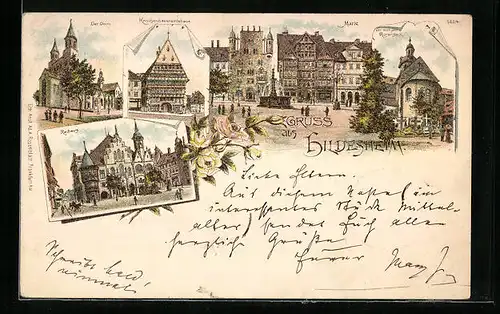 Der Dom
Knochenhaueramtshaus
Markt
Rathaus
GRUSS
aus
HILDESHEIM
Liebe Eltern.
Aus diesem Neste (ein
interessantes Stück Mittel-
alter) sendet Euch allen
herzliche Grüße
Euer
Schreibt bald
einmal.